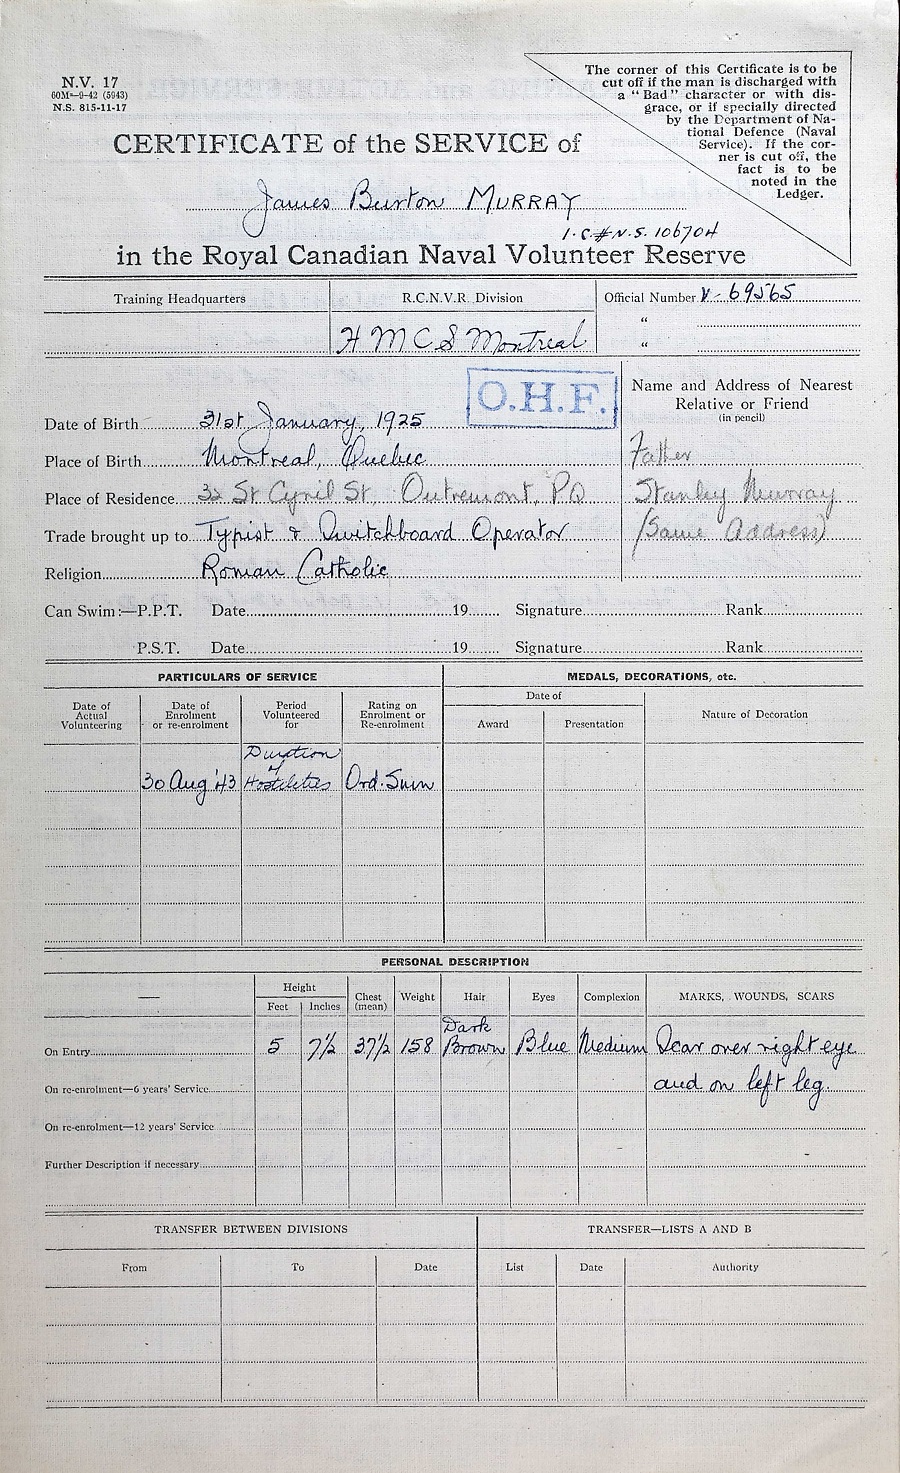 N.V. 17
60M—9-42 (5943)
N.S. 815-11-17
The corner of this Certificate is to be
cut off if the man is discharged with
a "Bad" character or with dis-
grace, or if specially directed
by the Department of Na-
tional Defence (Naval
Service). If the cor-
ner is cut off, the
fact is to be
noted in the
Ledger.
CERTIFICATE of the SERVICE of
James Burton MURRAY
I.C.#N.S. 106704
in the Royal Canadian Naval Volunteer Reserve
Training Headquarters R.C.N.V.R. Division Official Number V-69565
"
HMCS Montreal "
O.H.F.
Name and Address of Nearest
Relative or Friend
(in pencil)
Date of Birth 31st January, 1925
Place of Birth Montreal, Quebec Father
Place of Residence 32 St Cyril St, Outremont, PQ Stanley Murray
Trade brought up to Typist & Switchboard Operator (Same Address)
Religion Roman Catholic
Can Swim:—P.P.T. Date 19 Signature Rank
P.S.T. Date 19 Signature Rank
PARTICULARS OF SERVICE MEDALS, DECORATIONS, etc.
Date of Actual Volunteering Date of Enrolment or re-enrolment Period Volunteered for Rating on Enrolment or Re-enrolment Date of Nature of Decoration
Award Presentation
Duration
of
30 Aug '43 Hostilities Ord. Smn
PERSONAL DESCRIPTION
— Height Chest (mean) Weight Hair Eyes Complexion MARKS, WOUNDS, SCARS
Feet Inches
Dark
On Entry 5 7½ 37½ 158 Brown Blue Medium Scar over right eye
On re-enrolment—6 years' Service and on left leg.
On re-enrolment—12 years' Service
Further Description if necessary
TRANSFER BETWEEN DIVISIONS TRANSFER—LISTS A AND B
From To Date List Date Authority